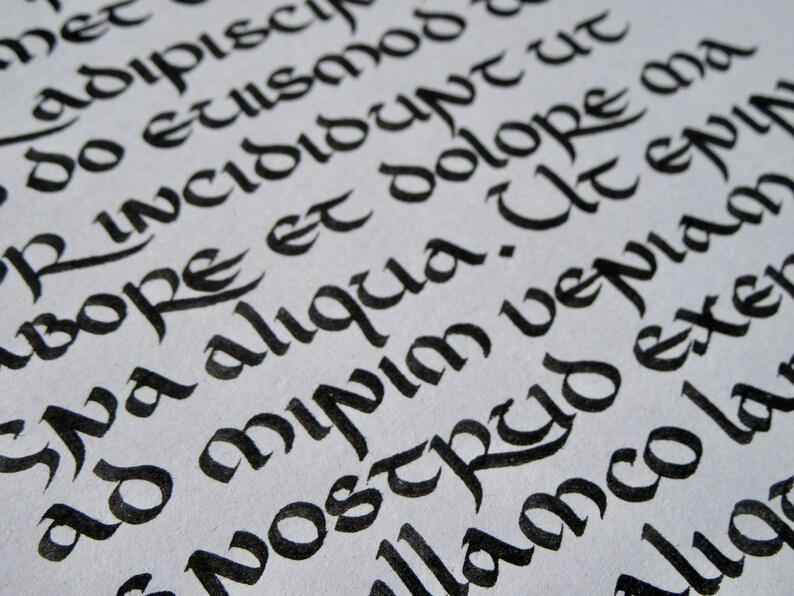 met
adipiscin
do eiusmod
r incididunt ut
abore et dolore ma
gna aliqua. Ut enim
ad minim veniam
s nostrud exer
ullamco lab
aliqu